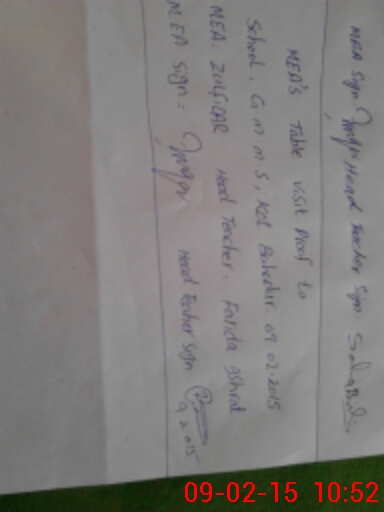 MEA Sign. Head Teacher Sign.
MEA's Table visit Proof to
School. G.M.M.S, Kot Bahadur 09.02.2015
MEA. ZULFIQAR Head Teacher. Farida Ishrat
MEA Sign: Head Teacher Sign
9.2.2015
09-02-15 10:52